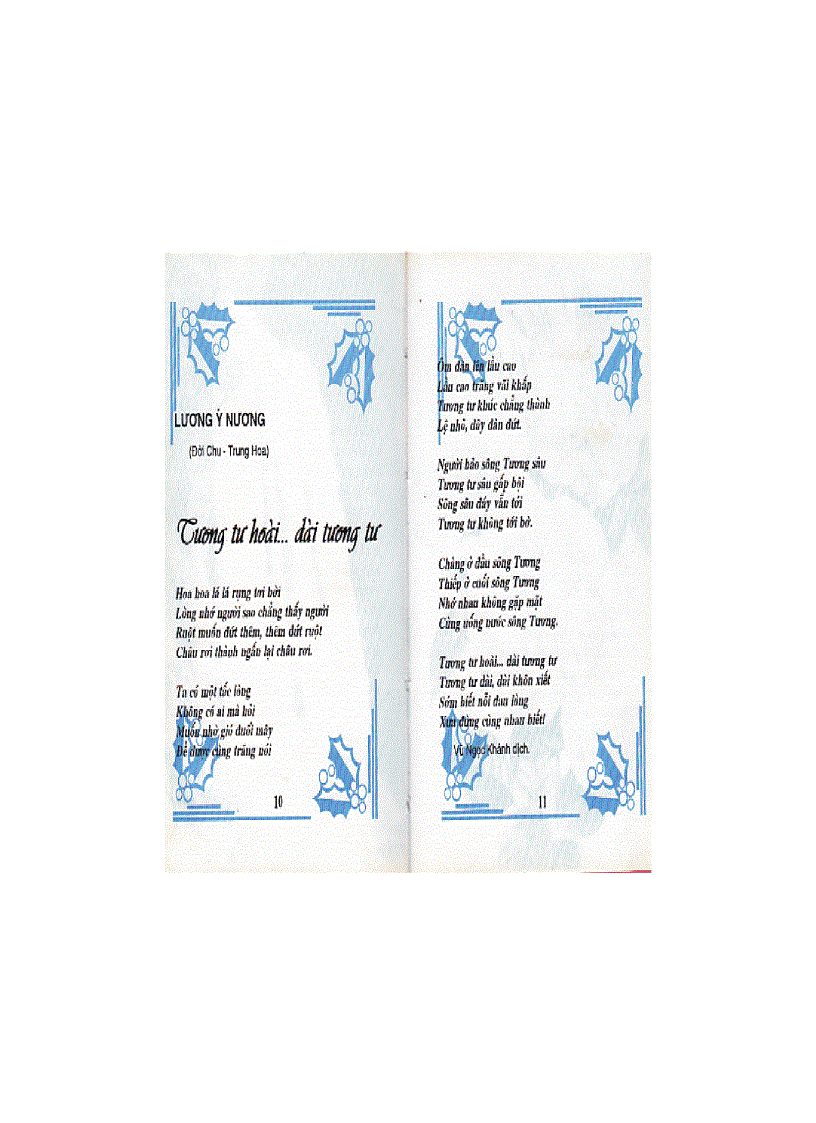 LƯƠNG Ý NƯƠNG
(Đời Chu - Trung Hoa)
Tương tư hoài... dài tương tư
Hoa hoa lá lá rụng tơi bời
Lòng nhớ người sao chẳng thấy người
Ruột muốn đứt thêm, thêm đứt ruột
Châu rơi thành ngấn lại châu rơi.
Ta có một tấc lòng
Không có ai mà hỏi
Muốn nhờ gió đuổi mây
Để được cùng trăng nói
10
Ôm đàn lên lầu cao
Lầu cao trăng vãi khắp
Tương tư khúc chẳng thành
Lệ nhỏ, dây đàn đứt.
Người bảo sông Tương sâu
Tương tư sâu gấp bội
Sông sâu đáy vẫn tới
Tương tư không tới bờ.
Chàng ở đầu sông Tương
Thiếp ở cuối sông Tương
Nhớ nhau không gặp mặt
Cùng uống nước sông Tương.
Tương tư hoài... dài tương tư
Tương tư dài, dài khôn xiết
Sớm biết nỗi đau lòng
Xưa đừng cùng nhau biết!
Vũ Ngọc Khánh dịch.
11